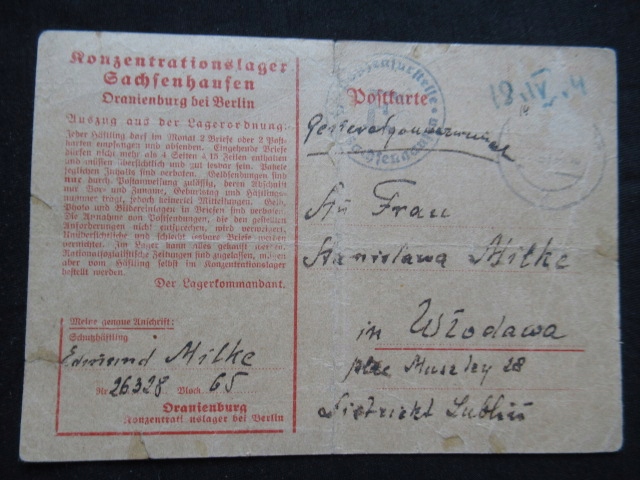 Konzentrationslager
Sachsenhausen
Oranienburg bei Berlin
Auszug aus der Lagerordnung:
Jeder Häftling darf im Monat 2 Briefe oder 2 Post-
karten empfangen und absenden. Eingehende Briefe
dürfen nicht mehr als 4 Seiten à 15 Zeilen enthalten
und müssen übersichtlich und gut lesbar sein. Pakete
jeglichen Inhalts sind verboten. Geldsendungen sind
nur durch Postanweisung zulässig, deren Abschnitt
nur Vor- und Zuname, Geburtstag und Häftlings-
nummer trägt, jedoch keinerlei Mitteilungen. Geld,
Photo und Bildereinlagen in Briefen sind verboten.
Die Annahme von Postsendungen, die den gestellten
Anforderungen nicht entsprechen, wird verweigert.
Unübersichtliche und schlecht lesbare Briefe werden
vernichtet. Im Lager kann Alles gekauft werden.
Nationalsozialistische Zeitungen sind zugelassen, müssen
aber vom Häftling selbst im Konzentrationslager
bestellt werden.
Der Lagerkommandant.
Meine genaue Anschrift:
Schutzhäftling
Edmund Milke
Nr. 26328 Block 65
Oranienburg
Konzentrationslager bei Berlin
Postkarte
Postzensurstelle
18.IV.4
Generalgouvernement
Frau
Stanisława Milke
in Włodawa
28
Districkt Lublin